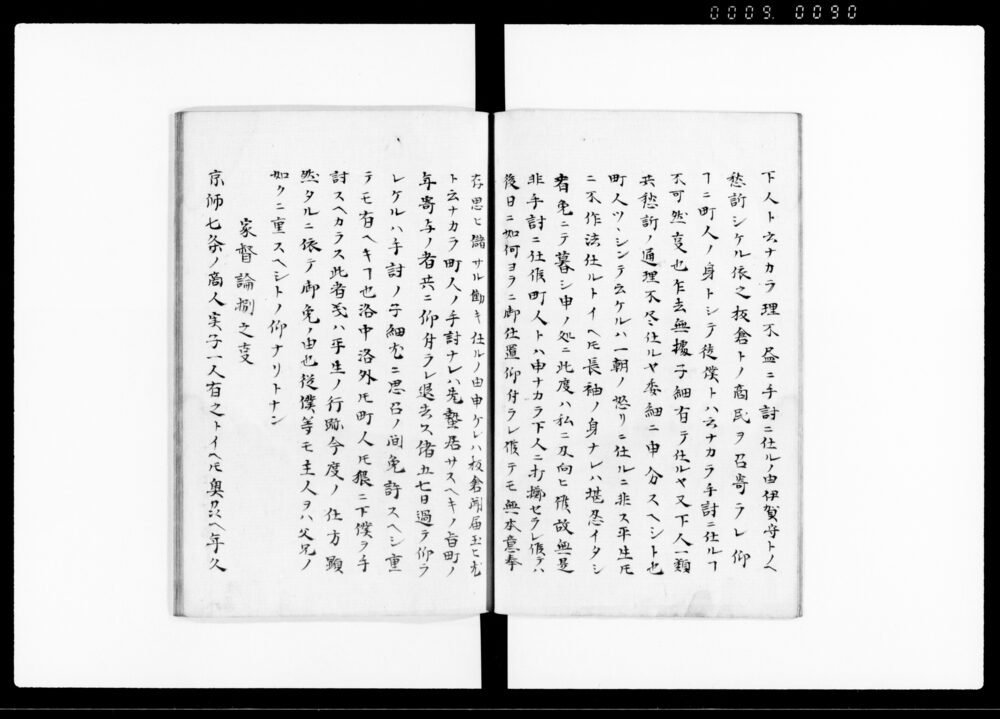 0009. 0090
下人ト云ナカラ理不盡ニ手討ニ仕ルノ由伊賀守トノヘ
愁訴シケル依之板倉トノ商民ヲ召寄ラレ仰
ヿニ町人ノ身トシテ從僕トハ云ナカラ手討ニ仕ルヿ
不可然亊也乍去無據子細有テ仕ルヤ又下人一類
共愁訴ノ通理不尽仕ルヤ委細ニ申分スヘシト也
町人ツヽシンテ云ケルハ一朝ノ怒リニ仕ルニ非ス平生𪜈
ニ不作法仕ルトイヘ𪜈長袖ノ身ナレハ堪忍イタシ
者免ニテ暮シ申ノ処ニ此度ハ私ニ刄向ヒ候故無是
非手討ニ仕候町人トハ申ナカラ下人ニ打擲セラレ候テハ
後日ニ如何ヨフニ御仕置仰付ラレ候テモ無本意奉
存思ヒ儲サル働キ仕ルノ由申ケレハ板倉聞届玉ヒ尤
ト云ナカラ町人ノ手討ナレハ先蟄居サスヘキノ旨町ノ
年寄与ノ者共ニ仰付ラレ退去ス偖五七日過テ仰ラ
レケルハ手討ノ子細尤ニ思召ノ間免許スヘシ重
テモ有ヘキヿ也洛中洛外𪜈町人𪜈猥ニ下僕ヲ手
討スヘカラス此者義ハ平生ノ行跡今度ノ仕方顯
然タルニ依テ御免ノ由也從僕等モ主人ヲハ父兄ノ
如クニ重スヘシトノ仰ナリトナン
家督論捌之亊
京師七条ノ商人実子一人有之トイヘ𪜈奥州ヘ年久